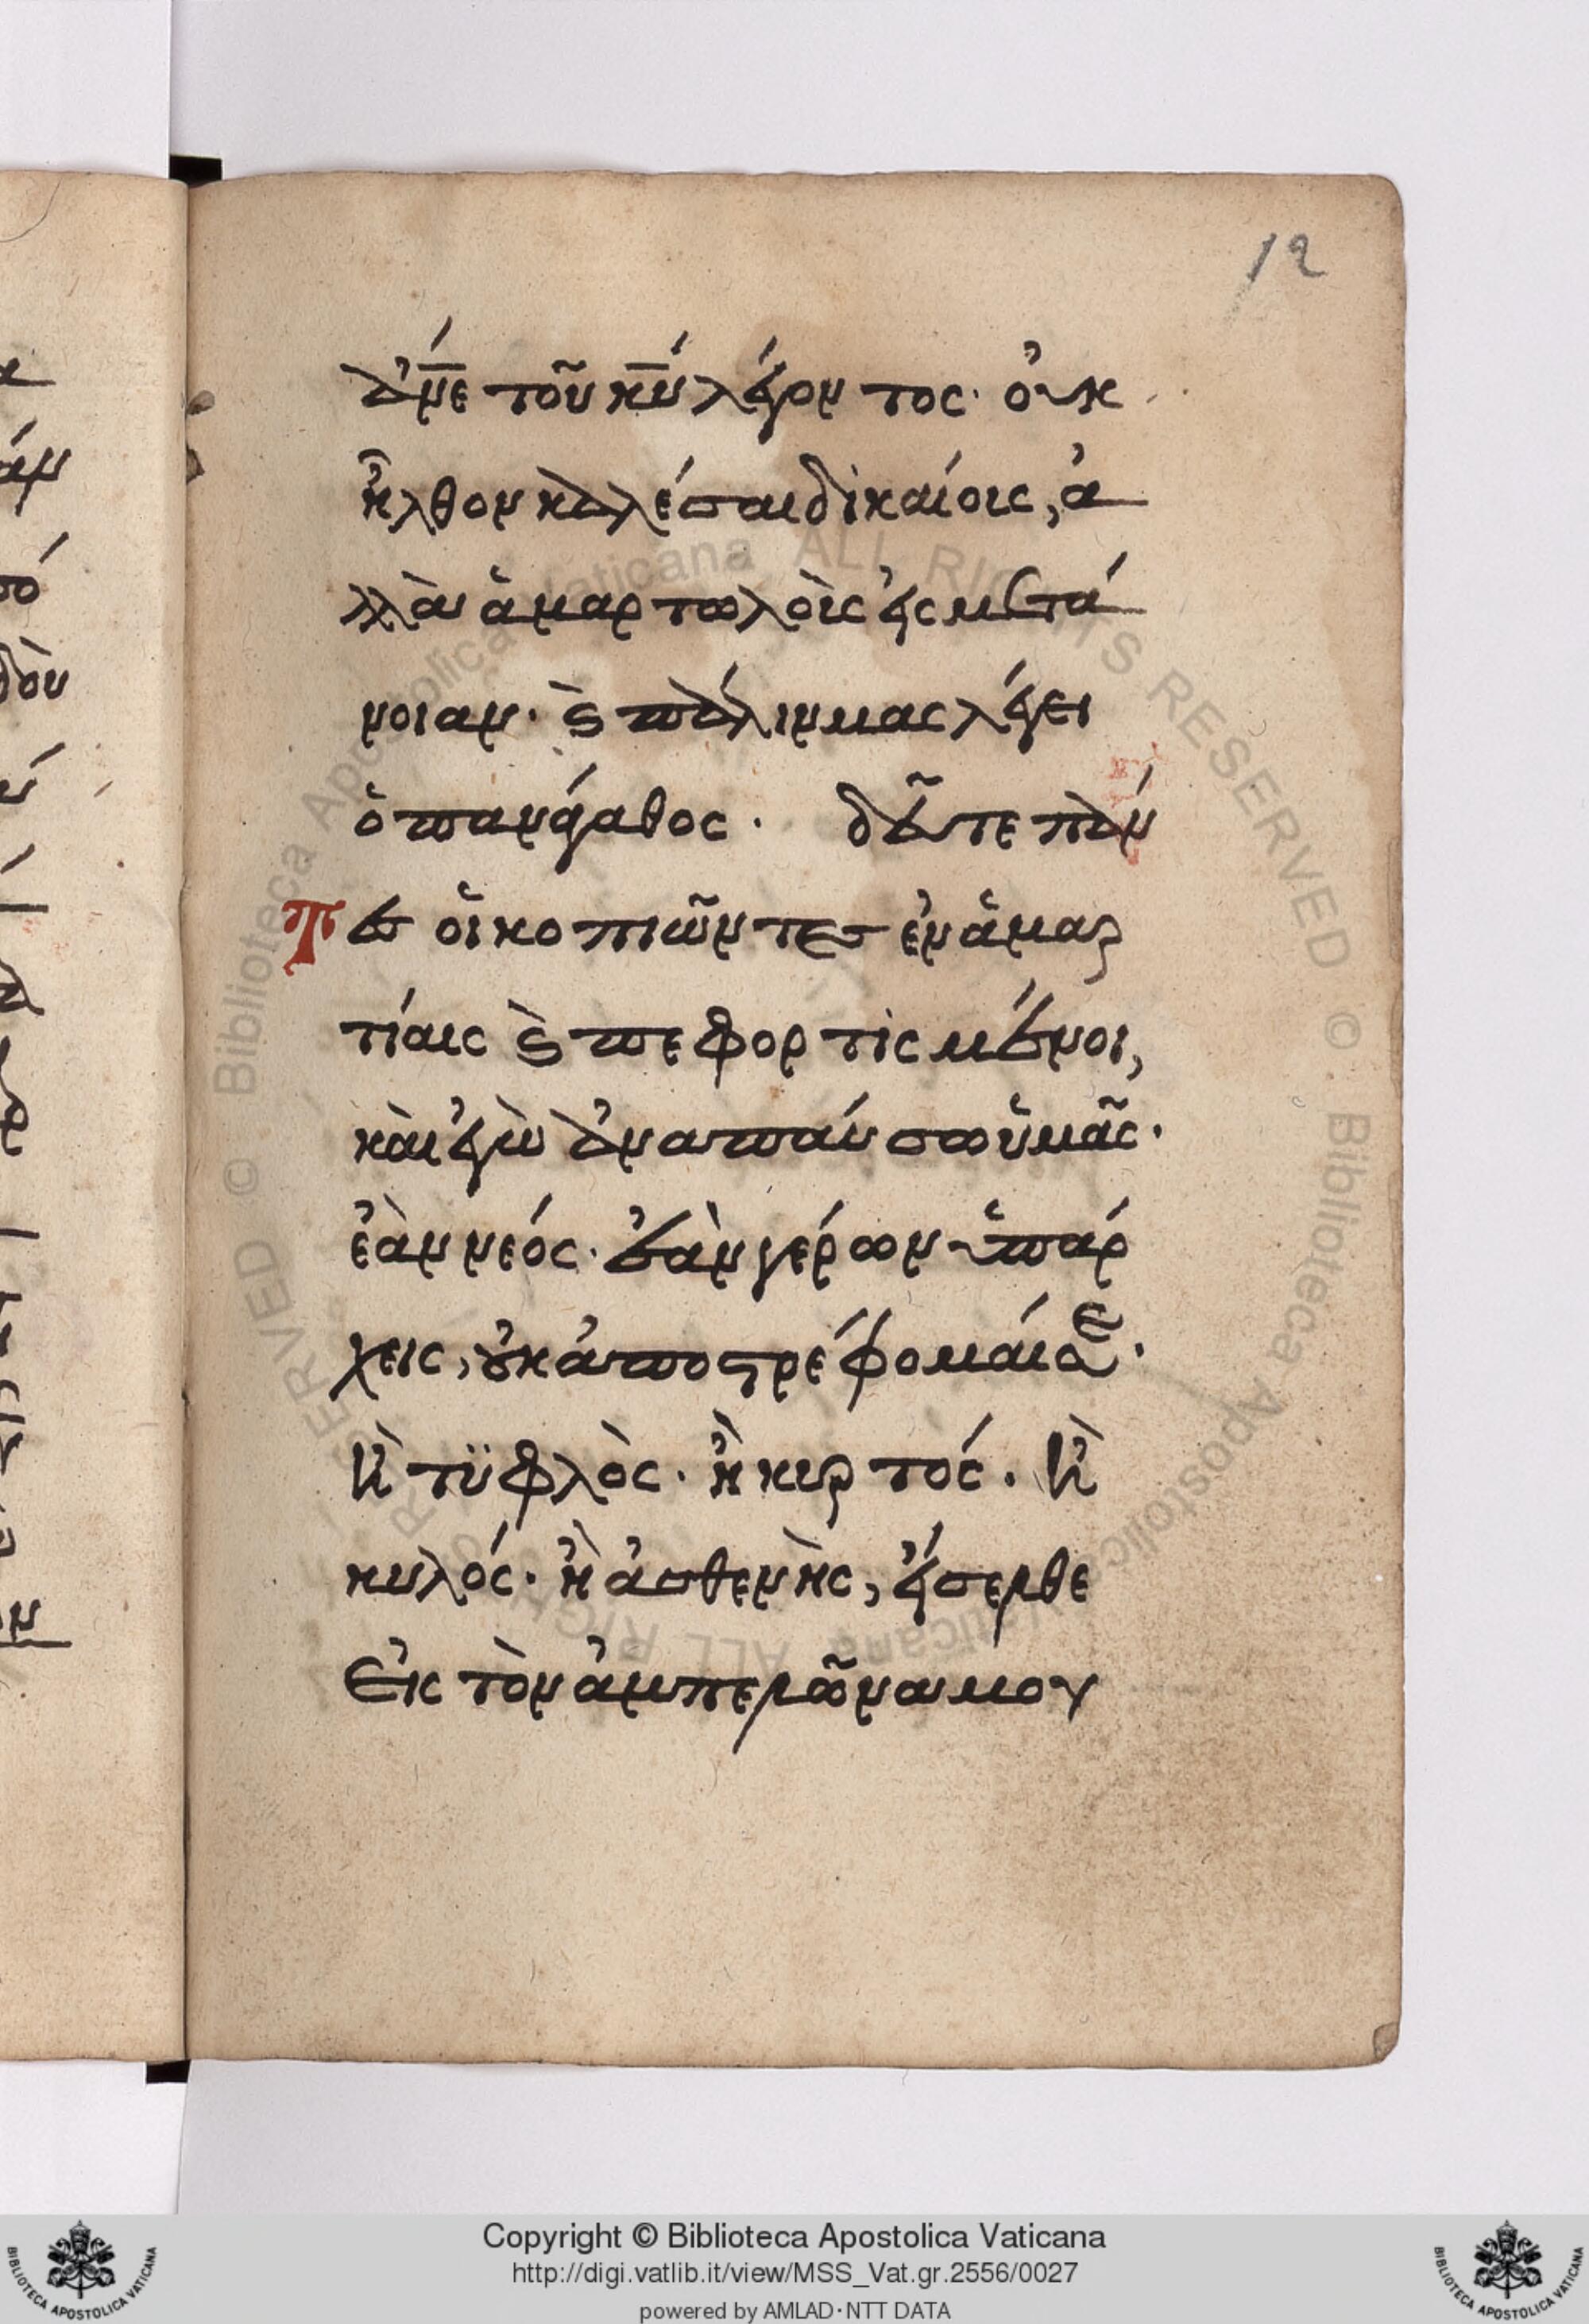 12
ἀμ̅ε τοῦ κ̅υ λέγοντος· οὐκ
ἦλθον καλέσαι δικαίοις, ἀ
λλὰ ἁμαρτωλοὶς εἰς μετά
νοιαν· ϗ πάλιν μας λέγει
ὁ πανάγαθος· δεῦτε πάν
τες οἱ κοπιῶντες ἐν ἁμαρ
τίαις ϗ πεφορτισμένοι,
καὶ ἐγὼ ἀναπαύσω ὑμᾶς·
ἐὰν νέος· ἐὰν γέρων ὑπάρ
χεις, οὐκ ἀποστρέφομαί σε·
ἢ τϋφλὸς· ἢ κυρτός· ἢ
κυλός· ἢ ἀσθενὴς, ἔσερθε
εἰς τὸν ἀμπελῶνα μου
Copyright © Biblioteca Apostolica Vaticana
http://digi.vatlib.it/view/MSS_Vat.gr.2556/0027
powered by AMLAD·NTT DATA